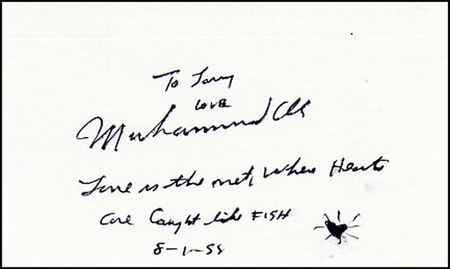 To Larry
LOVE
Muhammad Ali
Love is the net, Where Hearts
are Caught like FISH
8-1-99